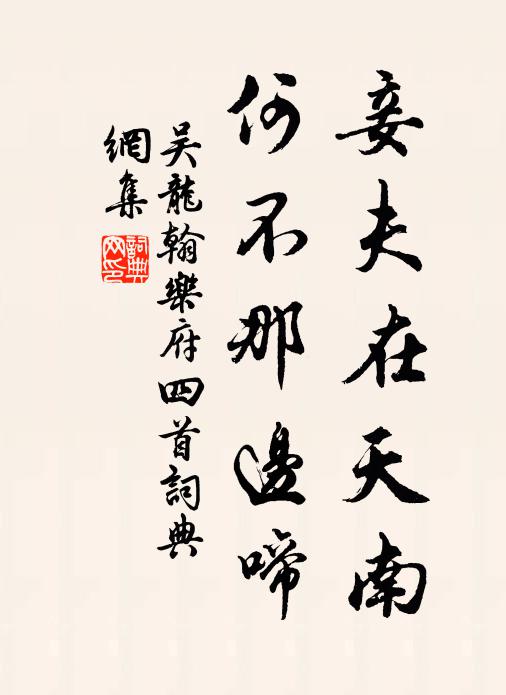 妾夫在天南
何不那邊啼
吳龍翰樂府四首詞典
網集
詞典网印